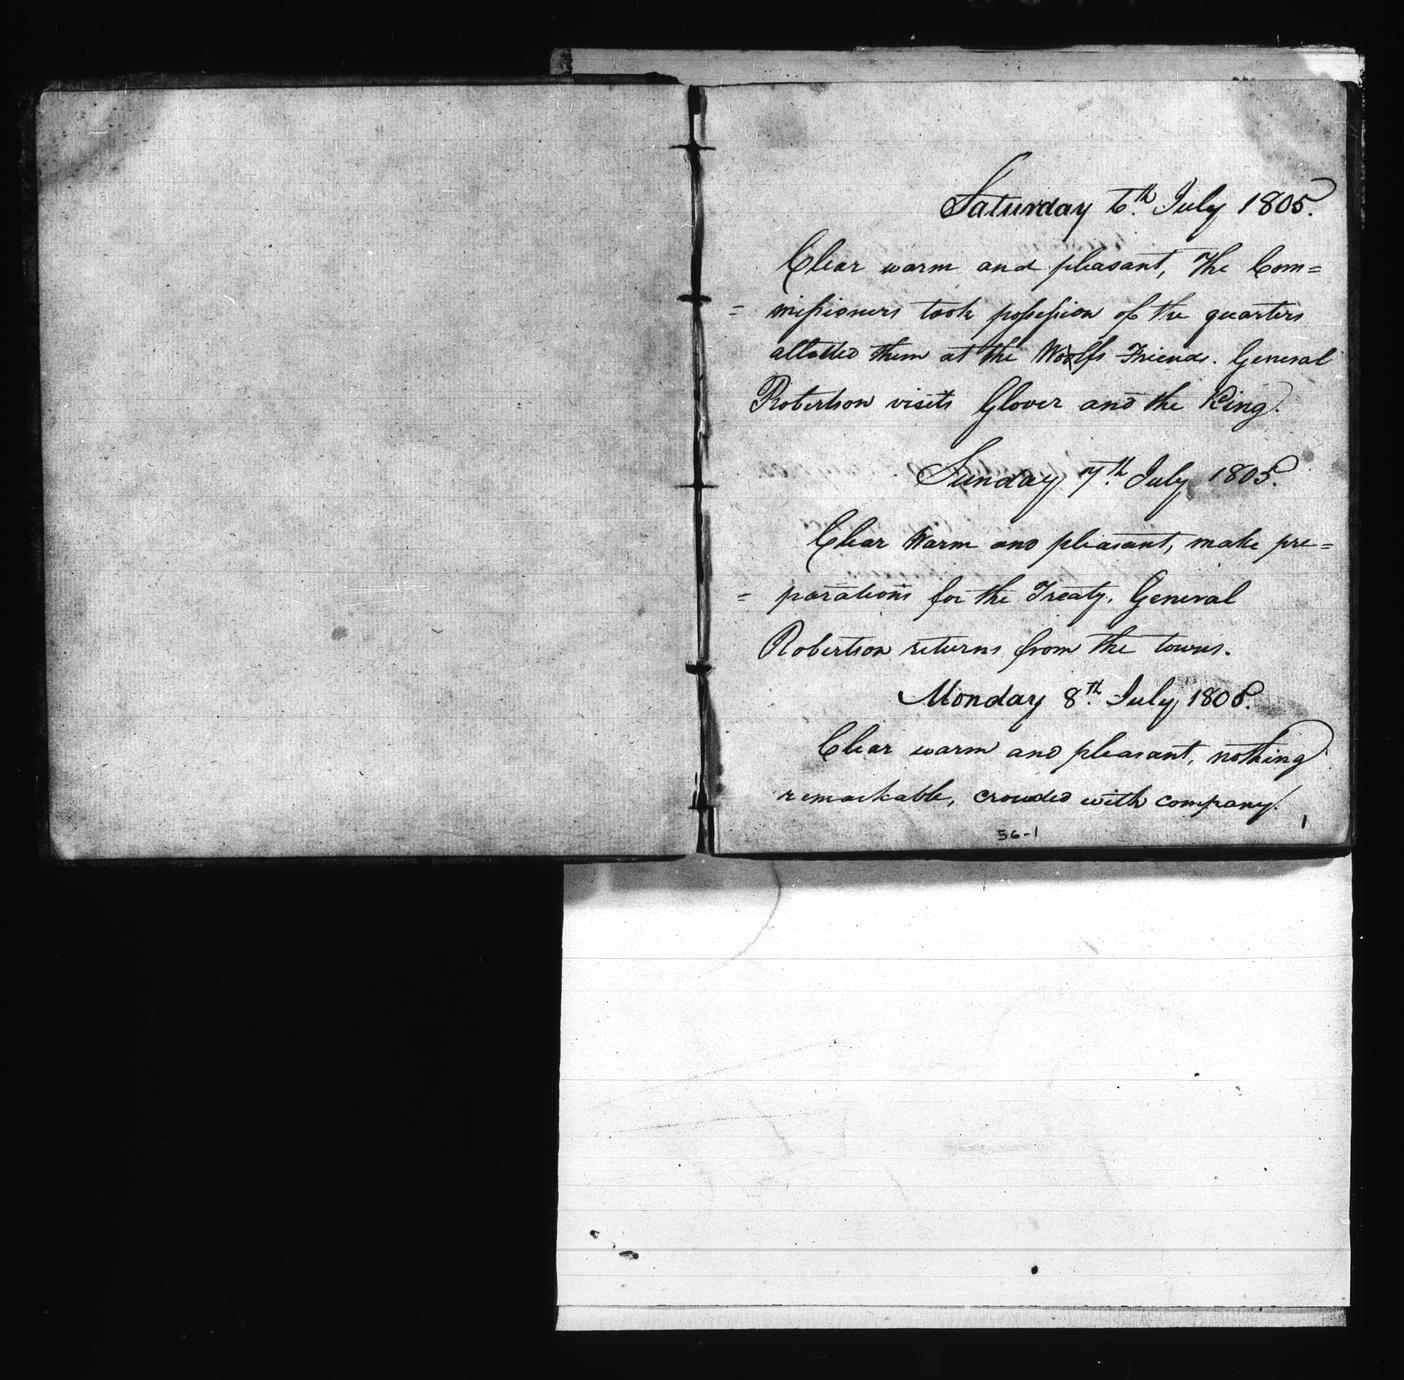 Saturday 6th. July 1805.
Clear warm and pleasant, The Com=
= missioners took possession of the quarters
allotted them at the Woolfs Friends. General
Robertson visits Glover and the King.
Sunday 7th. July 1805.
Clear Warm and pleasant, make pre=
= parations for the Treaty. General
Robertson returns from the towns.
Monday 8th. July 1805.
Clear warm and pleasant, nothing
remarkable, crowded with company.
56-1
1